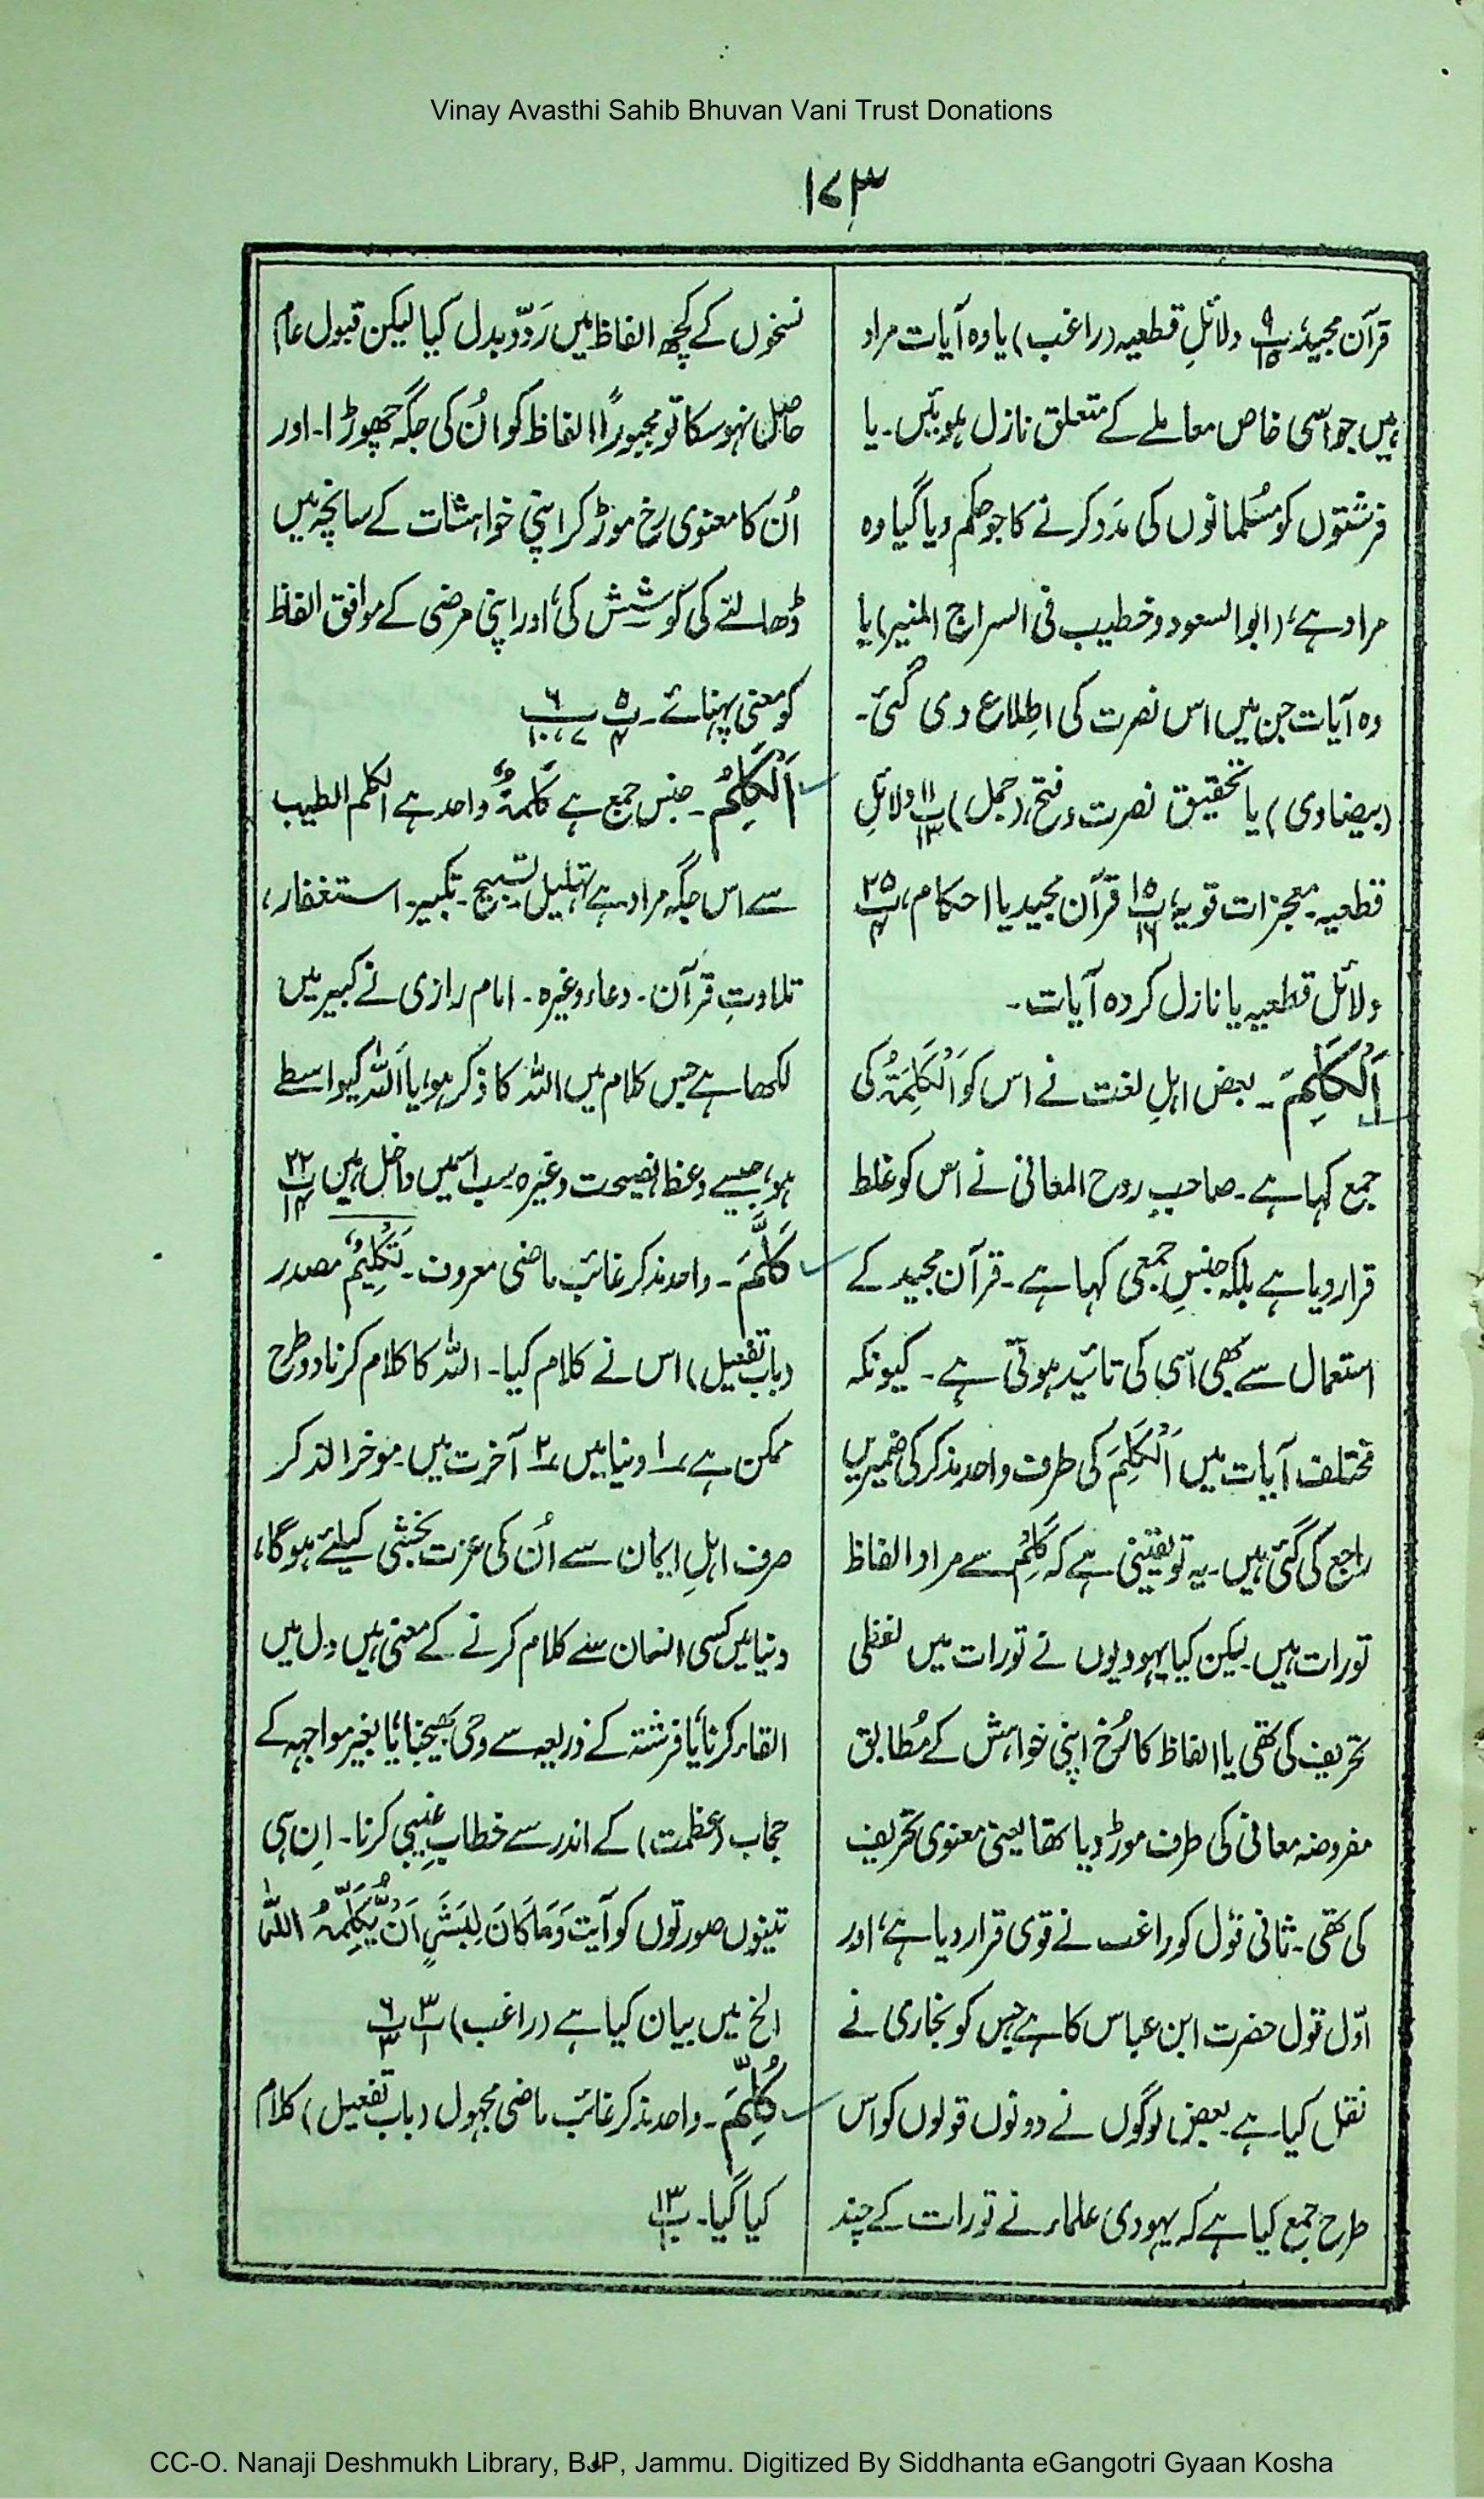 Vinay Avasthi Sahib Bhuvan Vani Trust Donations
۱۷۳
قرآن مجید، پ ۹/۱۵ دلائلِ قطعیہ (راغب) یا وہ آیات مراد
ہیں جو اسی خاص معاملے کے متعلق نازل ہوئیں۔ یا
فرشتوں کو مُسلمانوں کی مَدَد کرنے کا جو حکم دیا گیا وہ
مراد ہے، (ابو السعود و خطیب فی السراج المنیر) یا
وہ آیات جن میں اس نصرت کی اطلاع دی گئی۔
(بیضاوی) یا تحقیق نصرت و فتح، (جمل) پ ۱۱/۱۳ دلائلِ
قطعیہ۔ معجزات قویہ، پ ۱۵/۱۶ قرآن مجید یا احکام، پ ۲۵/۴
دلائل قطعیہ یا نازل کردہ آیات۔
اَلْکَلِمَ۔ بعض اہلِ لغت نے اس کو اَلْکَلِمَۃُ کی
جمع کہا ہے۔ صاحبِ روح المعانی نے اس کو غلط
قرار دیا ہے بلکہ جنسِ جمعی کہا ہے۔ قرآن مجید کے
استعمال سے بھی اسی کی تائید ہوتی ہے۔ کیونکہ
مختلف آیات میں اَلْکَلِمَ کی طرف واحد مذکر کی ضمیریں
راجع کی گئی ہیں۔ یہ تو یقینی ہے کہ کَلِمُ سے مراد الفاظ
تورات ہیں۔ لیکن کیا یہودیوں نے تورات میں لفظی
تحریف کی تھی یا الفاظ کا رُخ اپنی خواہش کے مُطابق
مفروضہ معانی کی طرف موڑ دیا تھا یعنی معنوی تحریف
کی تھی۔ ثانی قول کو راغب نے قوی قرار دیا ہے، اور
اوّل قول حضرت ابن عباس کا ہے جس کو بخاری نے
نقل کیا ہے۔ بعض لوگوں نے دونوں قولوں کو اس
طرح جمع کیا ہے کہ یہودی علماء نے تورات کے چند
نسخوں کے کچھ الفاظ میں رَدّ و بدل کیا لیکن قبول عام
حاصل نہوسکا تو مجبورًا الفاظ کو اُن کی جگہ چھوڑا۔ اور
اُن کا معنوی رخ موڑ کر اپنی خواہشات کے سانچہ میں
ڈھالنے کی کوشش کی، اور اپنی مرضی کے موافق الفاظ
کو معنی پہنائے۔ پ ۵/۴ پ ۶/۷، ۱۰
اَلْکَلِمُ۔ جنس جمع ہے کَلِمَۃٌ واحد ہے الکلم الطیب
سے اس جگہ مراد ہے تہلیل۔ تسبیح۔ تکبیر۔ استغفار،
تلاوتِ قرآن۔ دعاء وغیرہ۔ امام رازی نے کبیر میں
لکھا ہے جس کلام میں اللہ کا ذکر ہو، یا اللہ کیواسطے
ہو، جیسے وعظ نصیحت وغیرہ سب اسمیں داخل ہیں پ ۲۲/۱۴
کَلَّمَ۔ واحد مذکر غائب ماضی معروف۔ تَکْلِیْمٌ مصدر
(باب تفعیل) اس نے کلام کیا۔ اللہ کا کلام کرنا دو طرح
ممکن ہے ۱ دنیا میں ۲ آخرت میں۔ موخر الذکر
صرف اہلِ ایمان سے اُن کی عزت بخشی کیلئے ہوگا،
دنیا میں کسی انسان سے کلام کرنے کے معنی ہیں دل میں
القاء کرنا یا فرشتہ کے ذریعہ سے وحی بھیجنا، یا بغیر مواجہہ کے
حجاب (عظمت) کے اندر سے خطابِ غیبی کرنا۔ اِن ہی
تینوں صورتوں کو آیت وَمَا کَانَ لِبَشَرٍ اَنْ یُّکَلِّمَہُ اللّٰہُ
الخ میں بیان کیا ہے (راغب) پ ۳/۱ پ ۶/۳
کُلِّمَ۔ واحد مذکر غائب ماضی مجہول (باب تفعیل) کلام
کیا گیا۔ پ ۱۳/۱۰
CC-O. Nanaji Deshmukh Library, BJP, Jammu. Digitized By Siddhanta eGangotri Gyaan Kosha